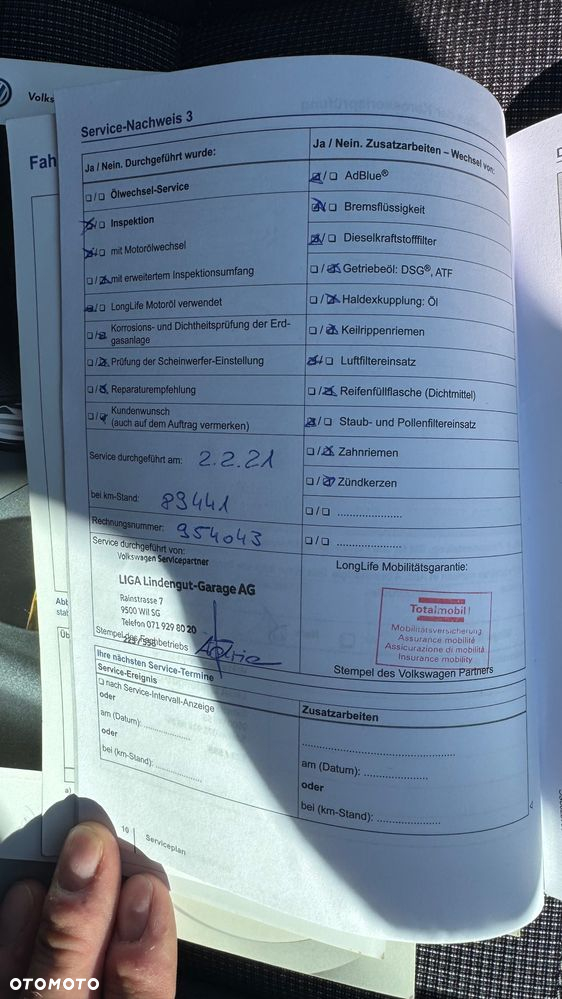 Volks
Fah
Service-Nachweis 3
Ja / Nein. Durchgeführt wurde:
❏/❏ Ölwechsel-Service
❏/❏ Inspektion
❏/❏ mit Motorölwechsel
❏/❏ mit erweitertem Inspektionsumfang
❏/❏ LongLife Motoröl verwendet
❏/❏ Korrosions- und Dichtheitsprüfung der Erd-
gasanlage
❏/❏ Prüfung der Scheinwerfer-Einstellung
❏/❏ Reparaturempfehlung
❏/❏ Kundenwunsch
(auch auf dem Auftrag vermerken)
Service durchgeführt am: 2.2.21
bei km-Stand: 89441
Rechnungsnummer: 954043
Service durchgeführt von:
Volkswagen Servicepartner
LIGA Lindengut-Garage AG
Rainstrasse 7
9500 Wil SG
Telefon 071 929 80 20
Stempel des Fachbetriebs
Ja / Nein. Zusatzarbeiten – Wechsel von:
❏/❏ AdBlue®
❏/❏ Bremsflüssigkeit
❏/❏ Dieselkraftstofffilter
❏/❏ Getriebeöl: DSG®, ATF
❏/❏ Haldexkupplung: Öl
❏/❏ Keilrippenriemen
❏/❏ Luftfiltereinsatz
❏/❏ Reifenfüllflasche (Dichtmittel)
❏/❏ Staub- und Pollenfiltereinsatz
❏/❏ Zahnriemen
❏/❏ Zündkerzen
❏/❏ .....................
❏/❏ .....................
LongLife Mobilitätsgarantie:
Totalmobil!
Mobilitätsversicherung
Assurance mobilité
Assicurazione di mobilità
Insurance mobility
Stempel des Volkswagen Partners
Ihre nächsten Service-Termine
Service-Ereignis
❏ nach Service-Intervall-Anzeige
oder
am (Datum): ................
oder
bei (km-Stand): ................
Zusatzarbeiten
................................................
am (Datum): .....................
oder
bei (km-Stand): .....................
10 | Serviceplan
OTOMOTO